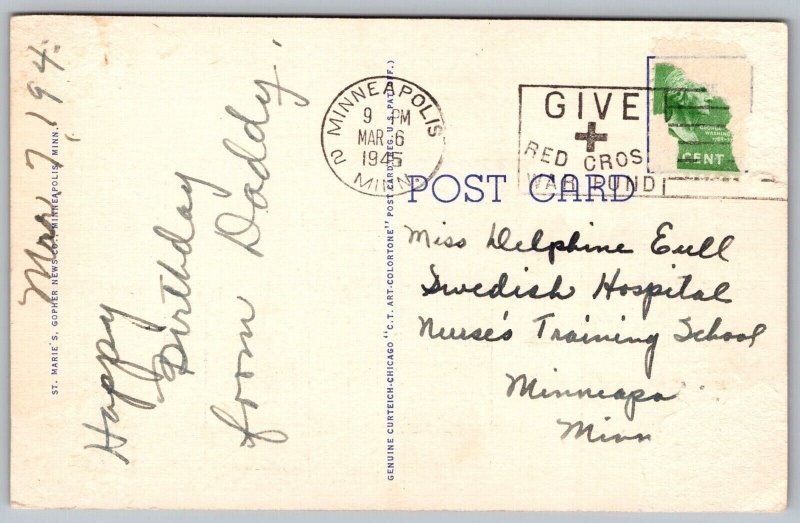 Mar 7, 194
Happy
Birthday
from Daddy.
ST. MARIE'S, GOPHER NEWS CO., MINNEAPOLIS, MINN.
GENUINE CURTEICH-CHICAGO "C.T. ART-COLORTONE" POST CARD (REG. U.S. PAT. OFF.)
MINNEAPOLIS
9 PM
MAR 6
1945
2 MINN.
GIVE
RED CROS
WAR FUND
CENT
POST CARD
Miss Delphine Eull
Swedish Hospital
Nurse's Training School
Minneapo
Minn